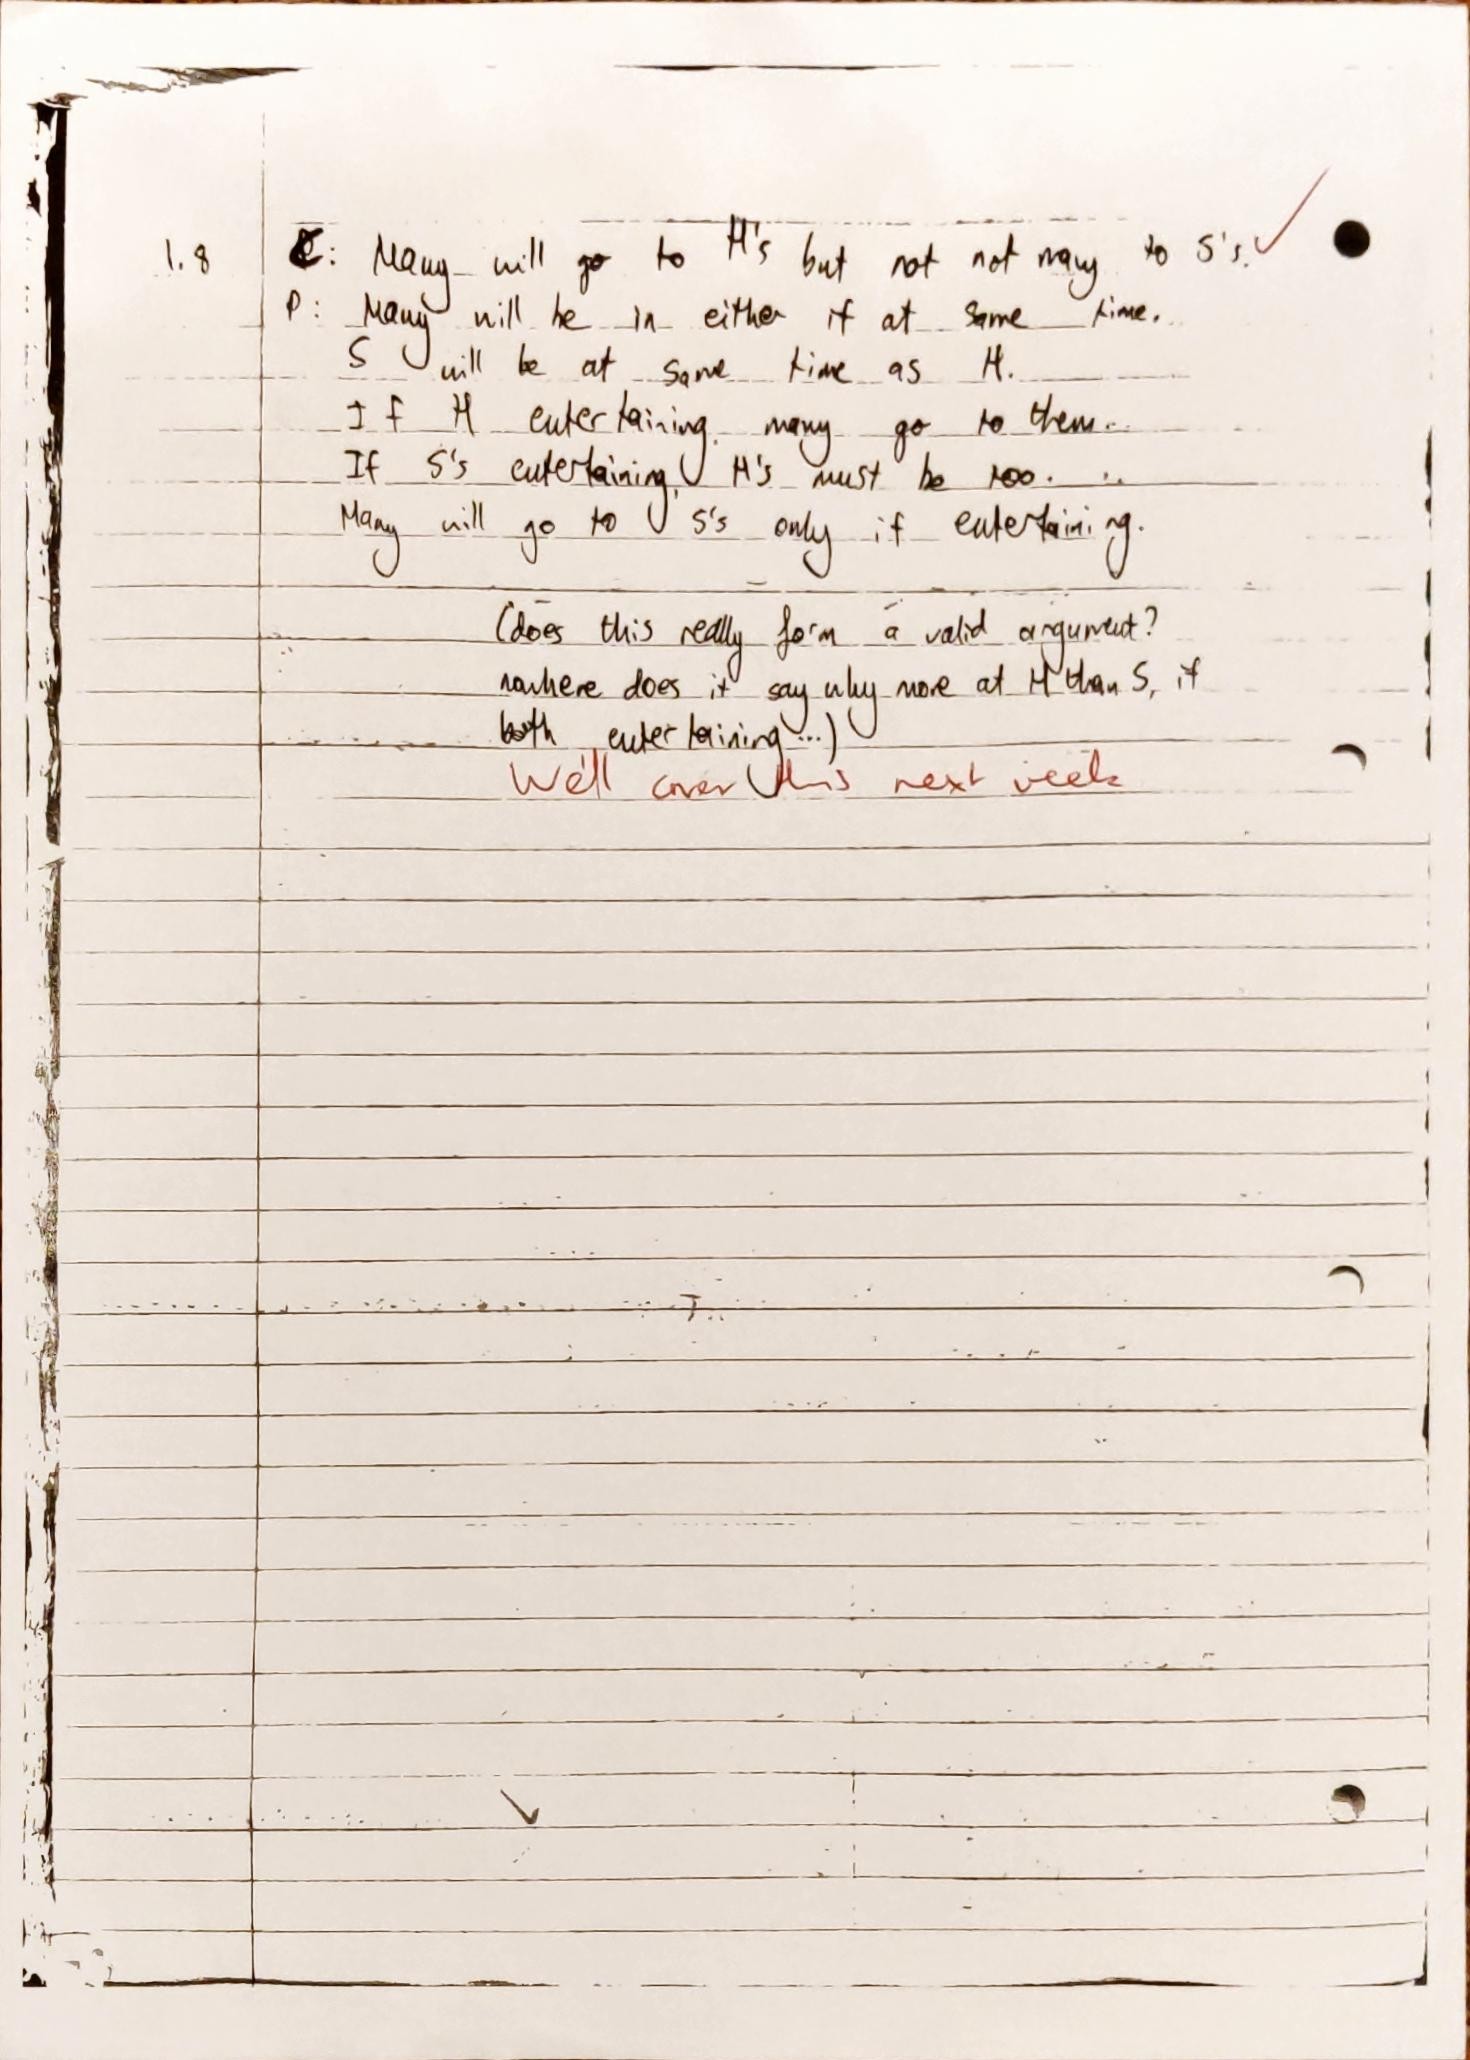 1.8 C: Many will go to H's but not not many to S's.
P: Many will be in either if at same time.
S will be at same time as H.
If H entertaining, many go to them.
If S's entertaining, H's must be too.
Many will go to S's only if entertaining.
(does this really form a valid argument?
nowhere does it say why more at H than S, if
both entertaining...)
We'll cover this next week